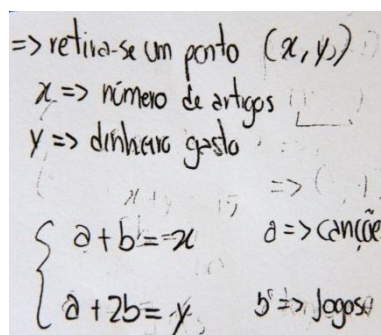 => retira-se um ponto (x, y)
x => número de artigos
y => dinheiro gasto
a + b = x a => canções
a + 2b = y b => Jogos